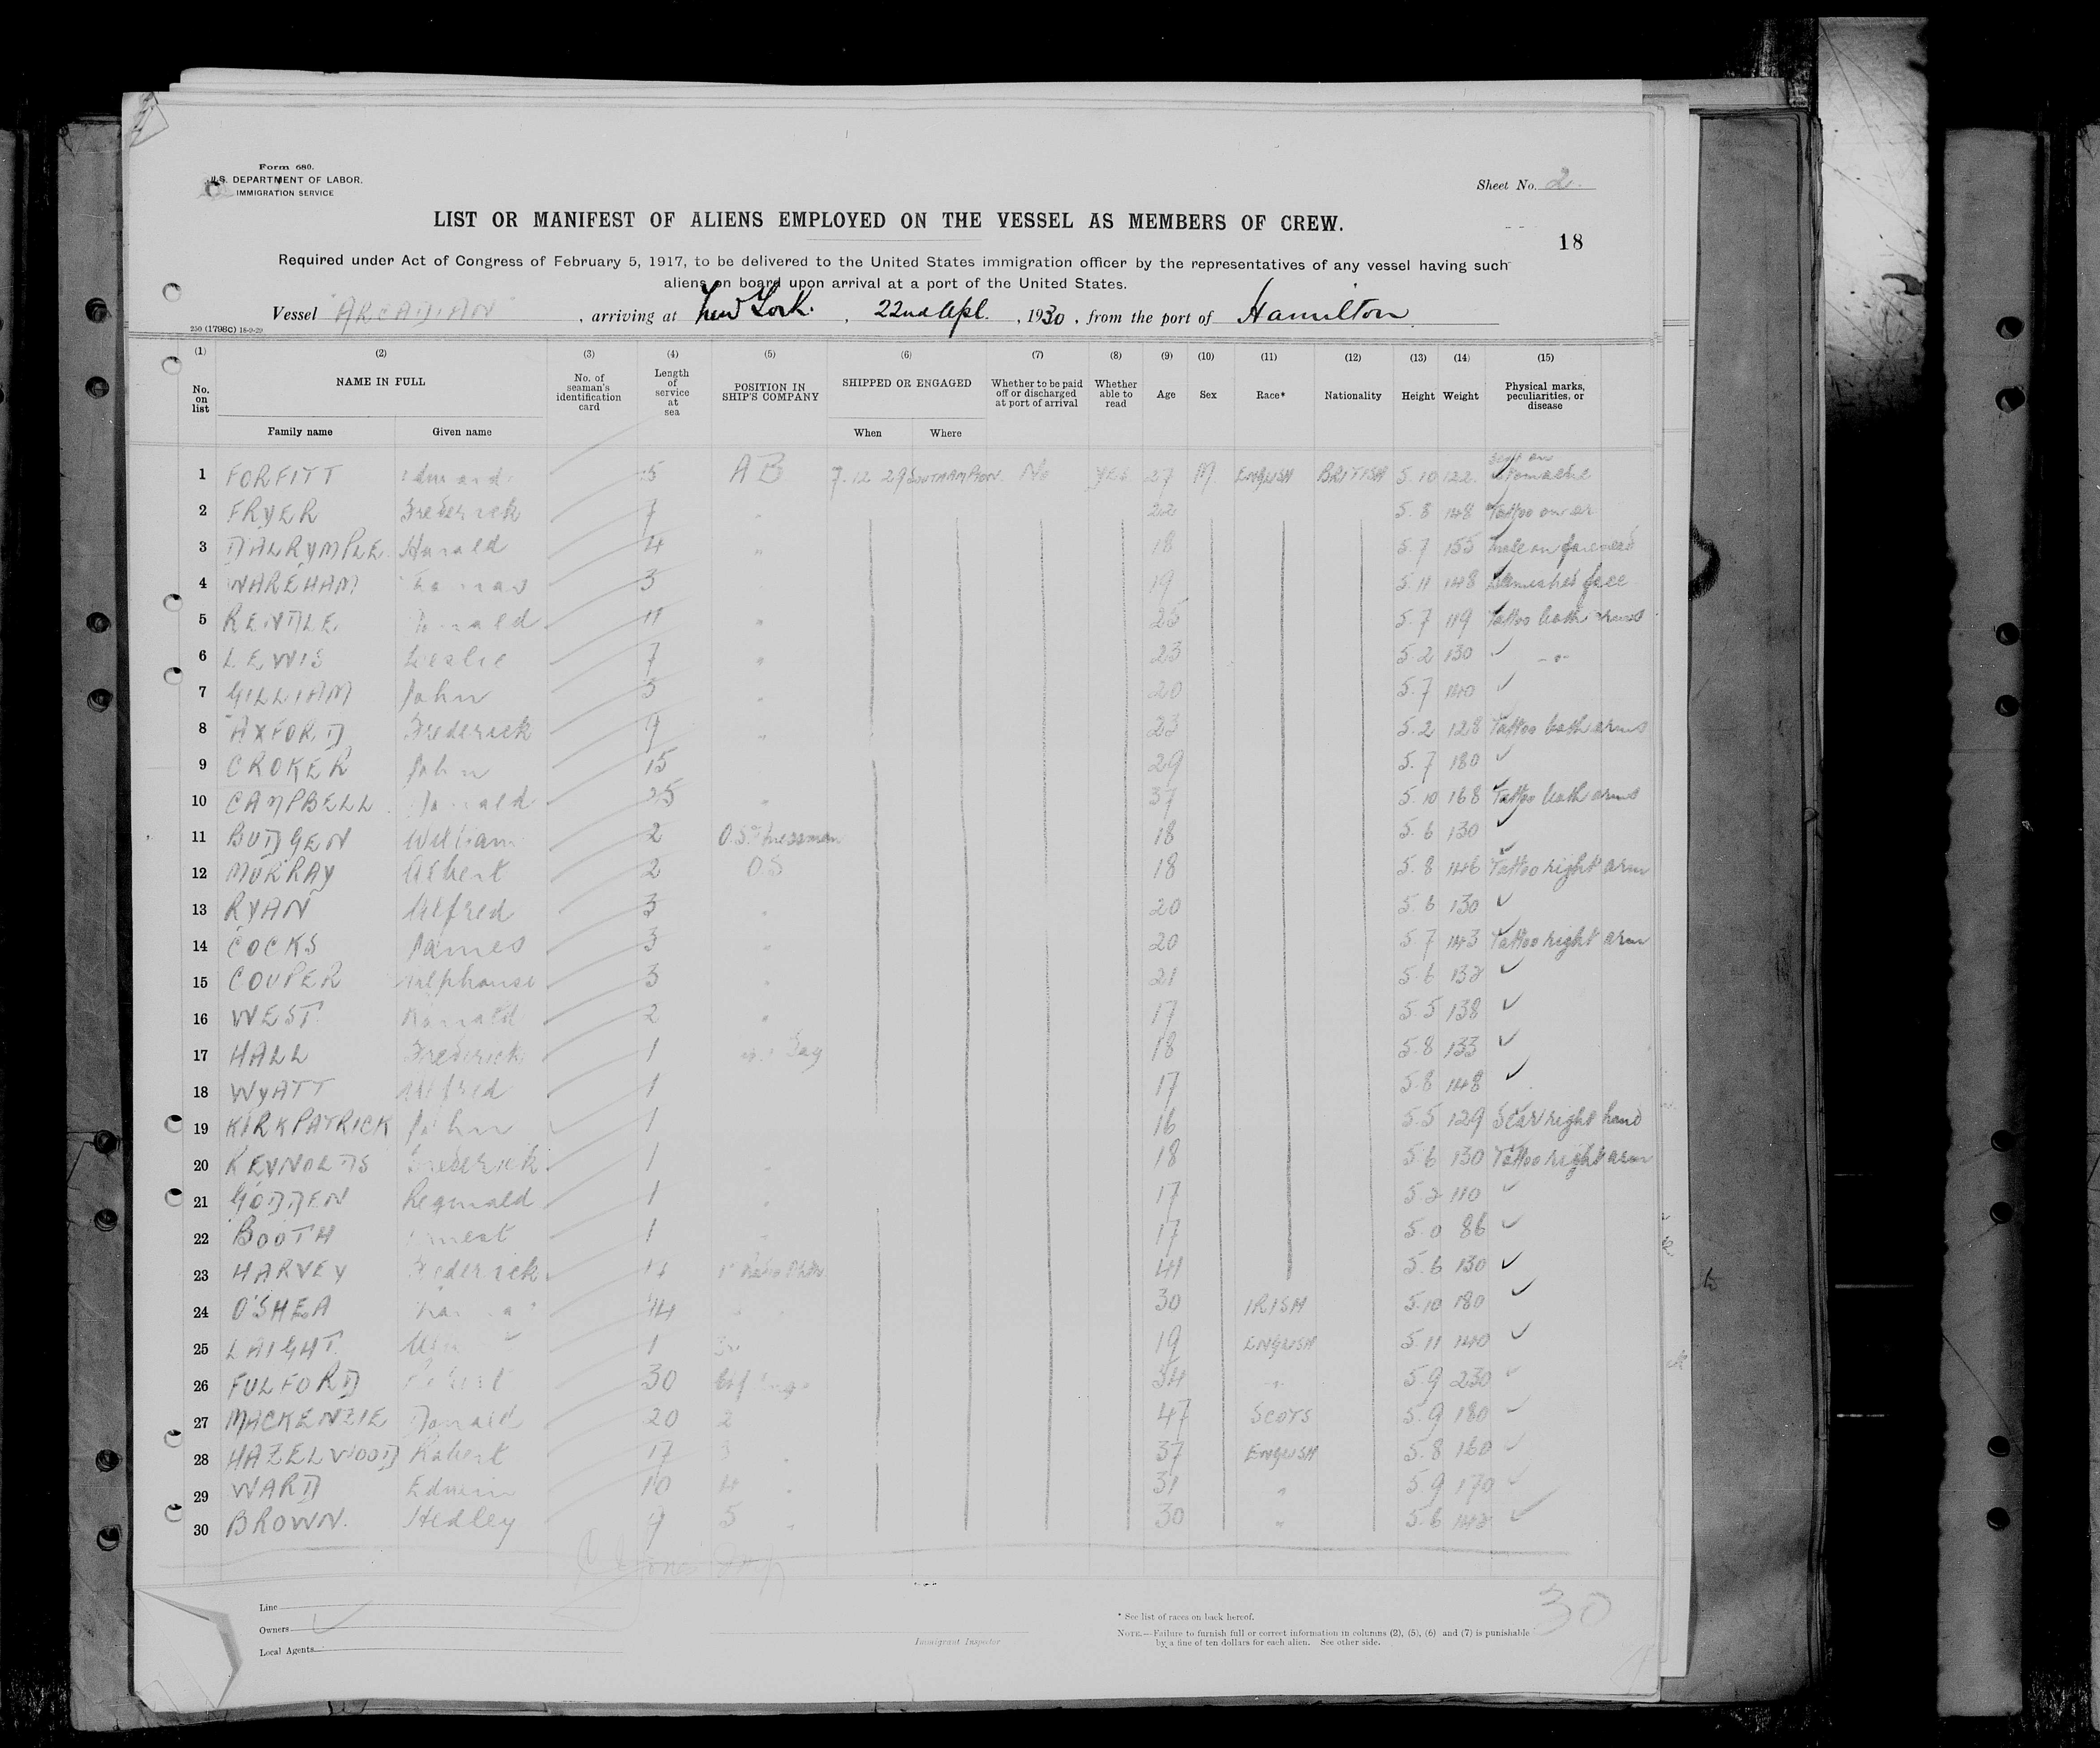 Form 680.
U.S. DEPARTMENT OF LABOR.
IMMIGRATION SERVICE
Sheet No. 2
LIST OR MANIFEST OF ALIENS EMPLOYED ON THE VESSEL AS MEMBERS OF CREW.
18
Required under Act of Congress of February 5, 1917, to be delivered to the United States immigration officer by the representatives of any vessel having such
aliens on board upon arrival at a port of the United States.
Vessel "ARCADIAN", arriving at New York., 22nd Apl., 1930, from the port of Hamilton
250 (1798C) 18-9-29
(1) (2) (3) (4) (5) (6) (7) (8) (9) (10) (11) (12) (13) (14) (15)
No. on list NAME IN FULL No. of seaman's identification card Length of service at sea POSITION IN SHIP'S COMPANY SHIPPED OR ENGAGED Whether to be paid off or discharged at port of arrival Whether able to read Age Sex Race* Nationality Height Weight Physical marks, peculiarities, or disease
Family name Given name When Where
1 FORFITT Edward 5 AB 7.12.29 SOUTHAMPTON No YES 27 M ENGLISH BRITISH 5.10 122
2 FRYER Frederick 7 " 22 5.8 148 Tattoo on
3 DALRYMPLE Harald 4 " 18 5.7 155 mole on forehead
4 WAREHAM 3 19 5.11 148 blemishes face
5 RENDLE 11 " 25 5.7 119 Tattoo both arms
6 LEWIS Leslie 7 " 23 5.2 130 ✓ -"-
7 GILLIAM John 3 " 20 5.7 140 ✓
8 AXFORD Frederick 9 " 23 5.2 128 Tattoo both arms
9 CROKER John 15 29 5.7 180 ✓
10 CAMPBELL Donald 25 " 37 5.10 168 Tattoo both arms
11 BUDGEN William 2 O.S. Messman 18 5.6 130 ✓
12 MURRAY Albert 2 OS 18 5.8 146 Tattoo right arm
13 RYAN Alfred 3 " 20 5.6 130 ✓
14 COCKS James 3 " 20 5.7 143 Tattoo right arm
15 COUPER Alphonse 3 " 21 5.6 132 ✓
16 WEST Ronald 2 " 17 5.5 138 ✓
17 HALL Frederick 1 18 5.8 133 ✓
18 WYATT Alfred 1 17 5.8 148 ✓
19 KIRKPATRICK John 1 16 5.5 129 Scar right hand
20 REYNOLDS Frederick 1 " 18 5.6 130 Tattoo right arm
21 GODDEN Reginald 1 " 17 5.2 110 ✓
22 BOOTH Ernest 1 17 5.0 86 ✓
23 HARVEY Frederick 41 5.6 130 ✓
24 O'SHEA 30 IRISH 5.10 180 ✓
25 LAIGHT 1 19 ENGLISH 5.11 140 ✓
26 FULFORD Robert 30 54 -"- 5.9 230 ✓
27 MACKENZIE Donald 20 2 47 SCOTS 5.9 180 ✓
28 HAZELWOOD Robert 17 3 " 37 ENGLISH 5.8 160 ✓
29 WARD Edwin 10 4 " 31 " 5.9 170 ✓
30 BROWN. Hedley 9 5 " 30 " 5.6 142 ✓
Line
Owners
Local Agents
Immigrant Inspector
* See list of races on back hereof.
NOTE.—Failure to furnish full or correct information in columns (2), (5), (6) and (7) is punishable
by a fine of ten dollars for each alien. See other side.
30